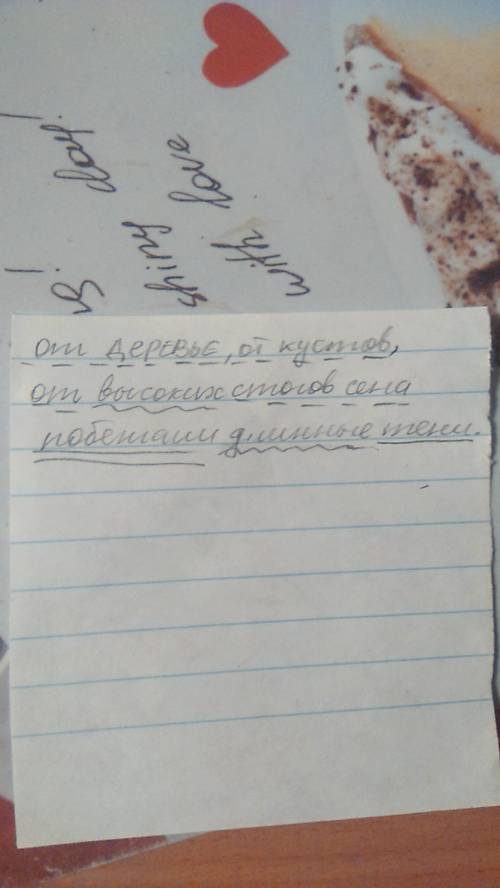 от деревье, от кустов,
от высоких стогов сена
побежали длинные тени.
shiny day!
with love